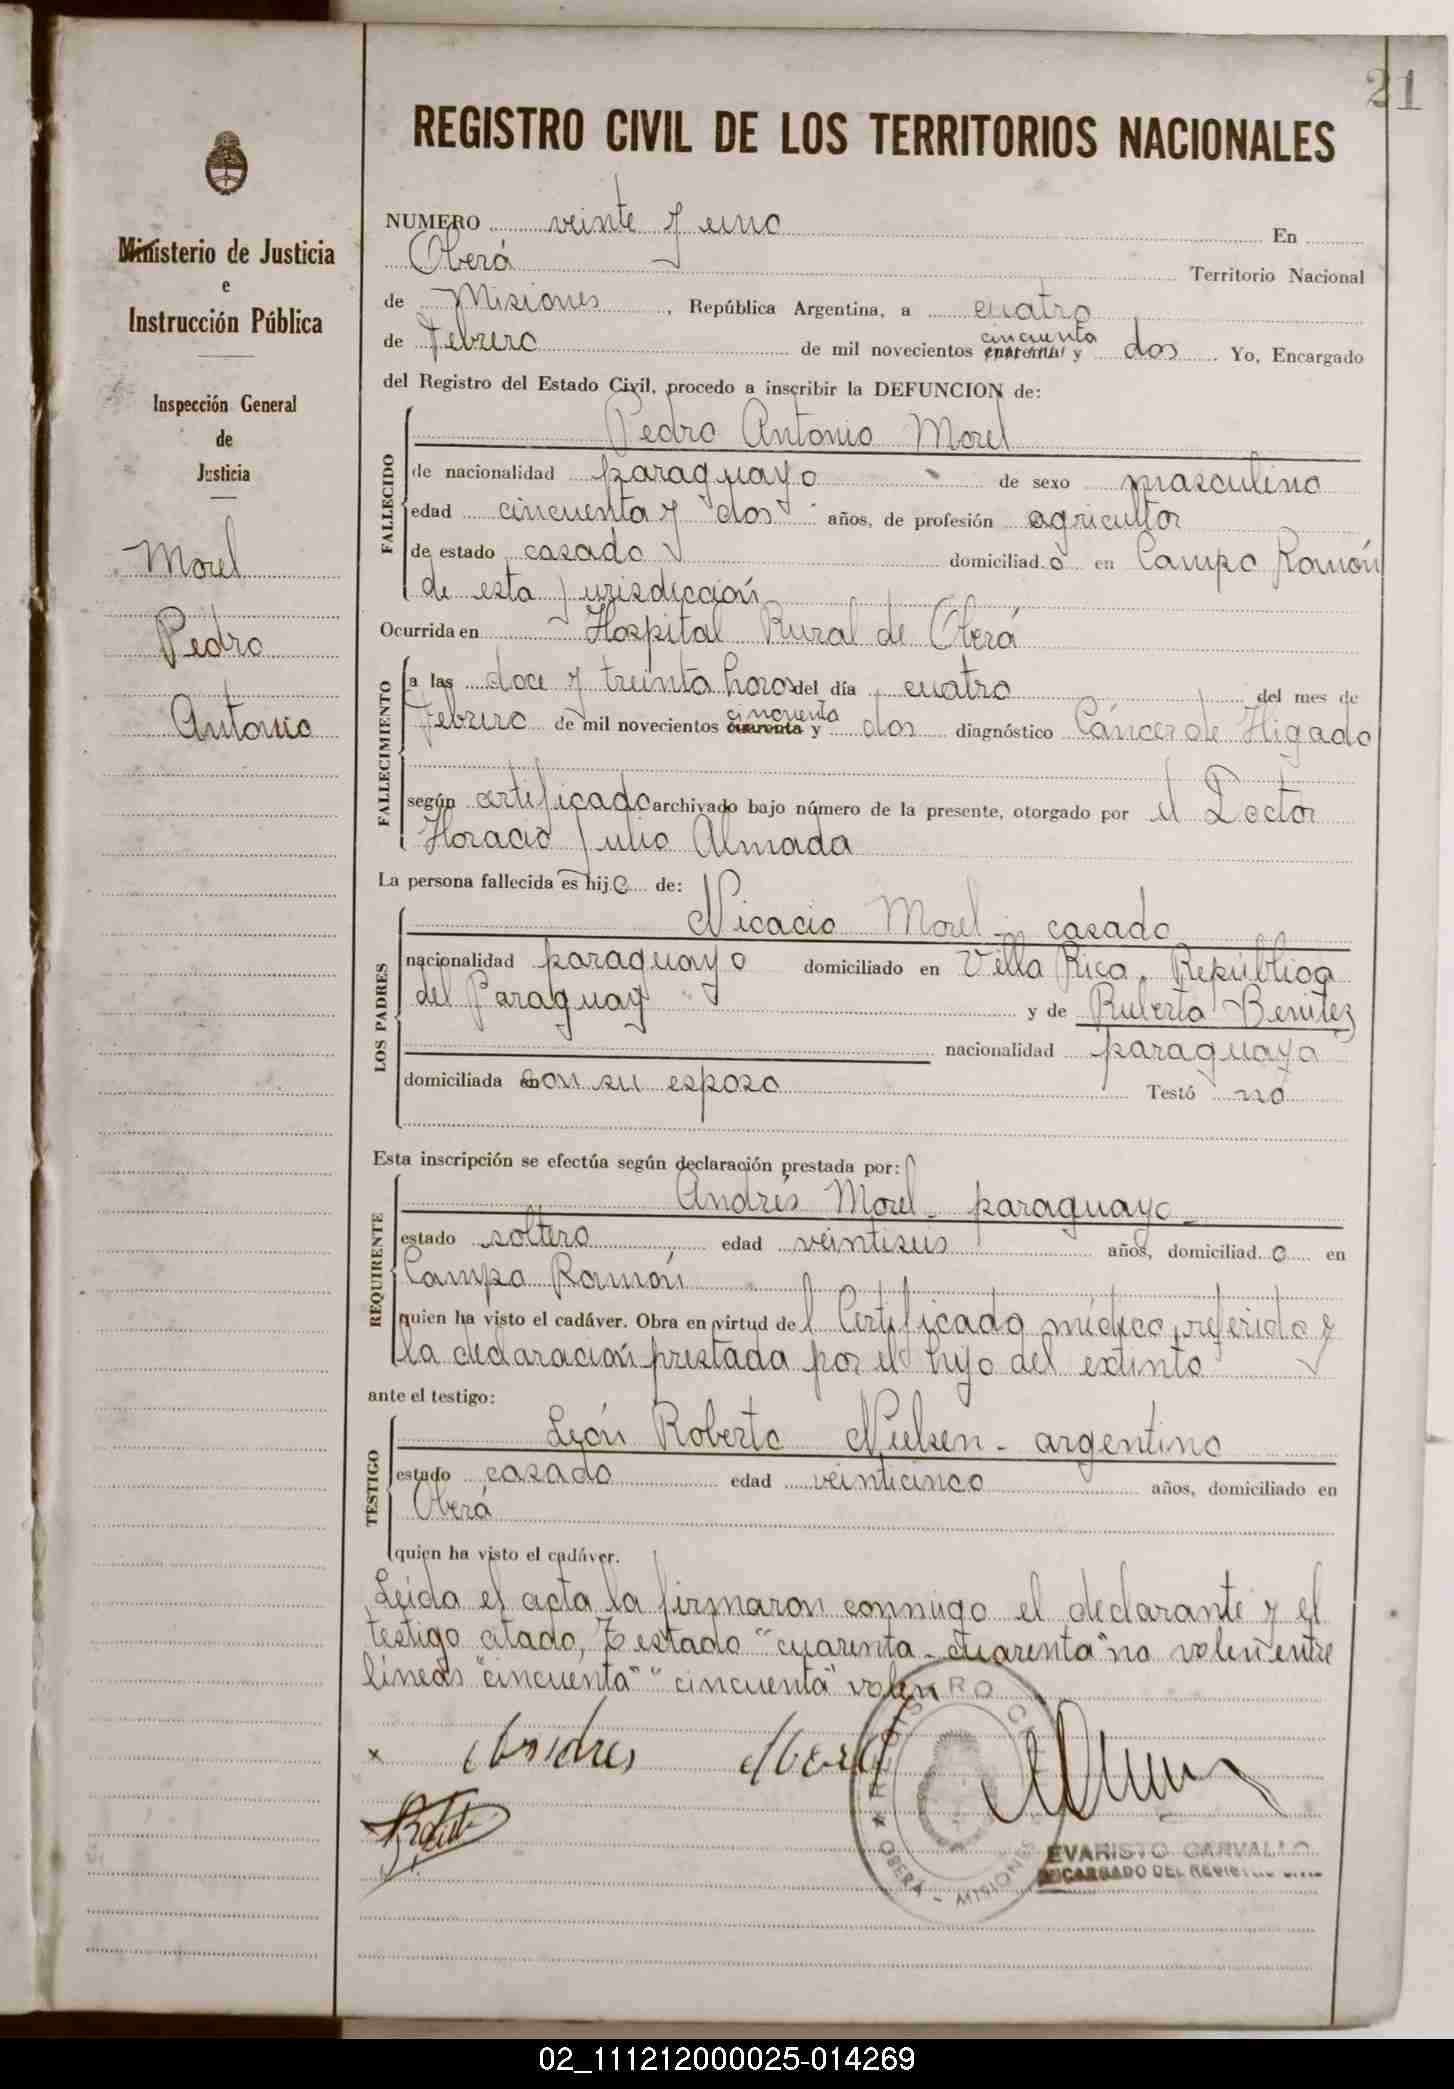 21
REGISTRO CIVIL DE LOS TERRITORIOS NACIONALES
Ministerio de Justicia
e
Instrucción Pública
Inspección General
de
Justicia
Morel
Pedro
Antonio
NUMERO veinte y uno En
Oberá Territorio Nacional
de Misiones, República Argentina, a cuatro
de febrero de mil novecientos cuarenta cincuenta y dos. Yo, Encargado
del Registro del Estado Civil, procedo a inscribir la DEFUNCION de:
FALLECIDO
Pedro Antonio Morel
de nacionalidad paraguayo de sexo masculino
edad cincuenta y dos años, de profesión agricultor
de estado casado domiciliado en Campo Ramón
de esta jurisdicción
Ocurrida en Hospital Rural de Oberá
FALLECIMIENTO
a las doce y treinta horas del día cuatro del mes de
febrero de mil novecientos cuarenta cincuenta y dos diagnóstico Cáncer de Higado
según certificado archivado bajo número de la presente, otorgado por el Doctor
Horacio Julio Almada
La persona fallecida es hijo de:
LOS PADRES
Nicacio Morel - casado
nacionalidad paraguayo domiciliado en Villa Rica, República
del Paraguay y de Ruberta Benitez
nacionalidad paraguaya
domiciliada con su esposo Testó no
Esta inscripción se efectúa según declaración prestada por:
REQUIRENTE
Andrés Morel - paraguayo -
estado soltero edad veintiseis años, domiciliado en
Campo Ramón
quien ha visto el cadáver. Obra en virtud del Certificado médico referido y
la declaración prestada por el hijo del extinto
ante el testigo:
TESTIGO
León Roberto Nielsen - argentino
estado casado edad veinticinco años, domiciliado en
Oberá
quien ha visto el cadáver.
Leida el acta la firmaron conmigo el declarante y el
testigo citado, Testado "cuarenta - cuarenta" no valen entre
líneas "cincuenta" "cincuenta" valen
x Andres Morel
REGISTRO CIVIL
OBERÁ - MISIONES
EVARISTO CARVALLO
ENCARGADO DEL REGISTRO CIVIL
02_111212000025-014269